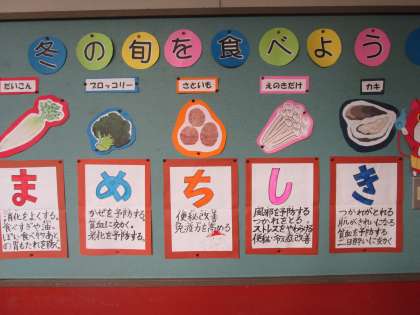 冬の旬を食べよう
だいこん
ブロッコリー
さといも
えのきだけ
カキ
ま
消化をよくする。
食べすぎや油っ
ぽい食べ物あと
の胃もたれを防ぐ。
め
かぜを予防する。
貧血に効く。
老化を予防する。
ち
便秘改善
免疫力を高める
し
風邪を予防する
つかれをとる。
ストレスをやわらげる
便秘・冷え症改善
き
つかれがとれる
肌がきれいになる
貧血を予防する
二日酔いに効く